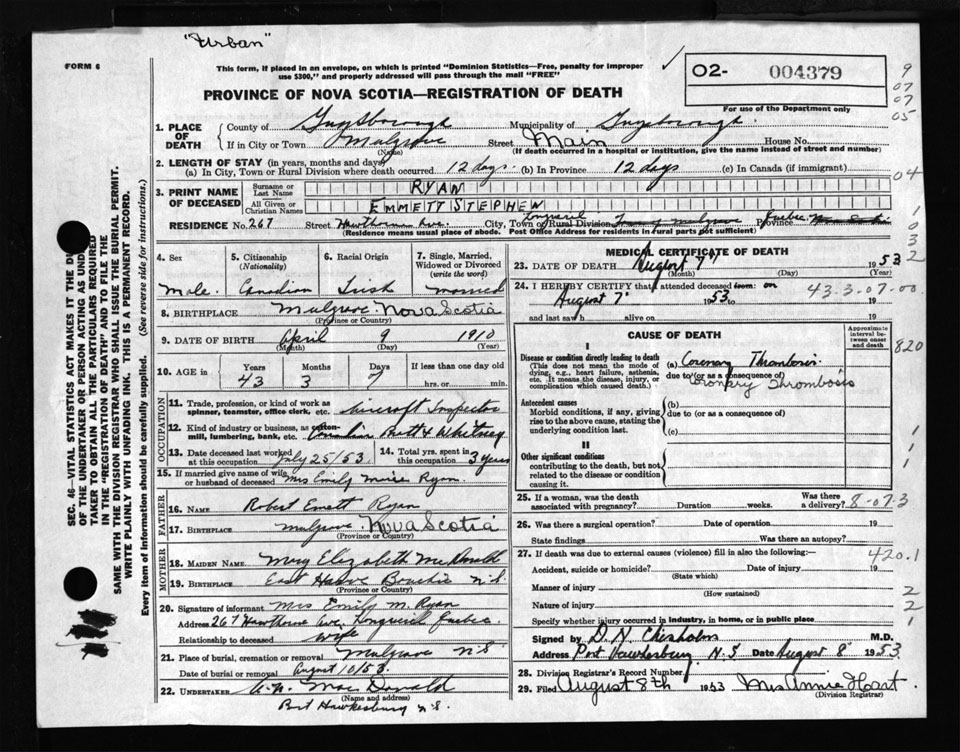 "Urban"
FORM 6
This form, if placed in an envelope, on which is printed "Dominion Statistics—Free, penalty for improper
use $300," and properly addressed will pass through the mail "FREE"
02- 004379
9
07
07
05
PROVINCE OF NOVA SCOTIA—REGISTRATION OF DEATH
For use of the Department only
1. PLACE OF DEATH
County of Guysborough Municipality of Guysborough
If in City or Town Mulgrave Street Main House No.
(Name) (If death occurred in a hospital or institution, give the name instead of street and number)
2. LENGTH OF STAY (in years, months and days)
(a) In City, Town or Rural Division where death occurred 12 days. (b) In Province 12 days (c) In Canada (if immigrant)
04
3. PRINT NAME OF DECEASED
Surname or Last Name RYAN
All Given or Christian Names EMMETT STEPHEN
1
0
3
2
RESIDENCE No. 267 Street Hawthorne Ave. City, Town or Rural Division Longueuil Province Quebec
(Residence means usual place of abode. Post Office Address for residents in rural parts not sufficient)
4. Sex
Male.
5. Citizenship (Nationality)
Canadian
6. Racial Origin
Irish
7. Single, Married, Widowed or Divorced (write the word)
married
8. BIRTHPLACE Mulgrave Nova Scotia
(Province or Country)
9. DATE OF BIRTH April 9 1910
(Month) (Day) (Year)
10. AGE in Years Months Days If less than one day old
43 3 hrs. or min.
OCCUPATION
11. Trade, profession, or kind of work as
spinner, teamster, office clerk, etc. Aircraft Inspector
12. Kind of industry or business, as cotton-
mill, lumbering, bank, etc. & Whitney
13. Date deceased last worked
at this occupation July 25/53.
14. Total yrs. spent in
this occupation 3 years
15. If married give name of wife
or husband of deceased Mrs Emily Ryan.
FATHER
16. Name Robert Emett Ryan
17. Birthplace Mulgrave Nova Scotia
(Province or Country)
MOTHER
18. MAIDEN NAME Mary Elizabeth McDonald
19. BIRTHPLACE East Havre Bouchie N.S.
(Province or Country)
20. Signature of informant Mrs Emily M. Ryan
Address 267 Hawthorne Ave. Longueuil Quebec
Relationship to deceased wife
21. Place of burial, cremation or removal Mulgrave N.S
Date of burial or removal August 10/53.
22. UNDERTAKER MacDonald
(Name and address)
Port Hawkesbury N.S.
MEDICAL CERTIFICATE OF DEATH
23. DATE OF DEATH August 7" 1953
(Month) (Day) (Year)
24. I HEREBY CERTIFY that I attended deceased from: on
August 7" 1953 to 19
and last saw h alive on 19
43-3-07-00
CAUSE OF DEATH
Approximate interval between onset and death
820
I
Disease or condition directly leading to death
(This does not mean the mode of
dying, e.g., heart failure, asthenia,
etc. It means the disease, injury, or
complication which caused death.)
(a) Coronary Thrombosis.
due to (or as a consequence of)
Coronary Thrombosis
Antecedent causes
Morbid conditions, if any, giving
rise to the above cause, stating the
underlying condition last.
(b)
due to (or as a consequence of)
(c)
II
Other significant conditions
contributing to the death, but not
related to the disease or condition
causing it.
1
1
1
25. If a woman, was the death
associated with pregnancy? Duration weeks. Was there a delivery?
8-07-3
26. Was there a surgical operation? Date of operation 19
State findings Was there an autopsy?
27. If death was due to external causes (violence) fill in also the following:—
420.1
Accident, suicide or homicide? Date of injury 19
(State which)
Manner of injury
(How sustained)
2
Nature of injury
2
Specify whether injury occurred in industry, in home, or in public place
1
Signed by D. N. Chisholm M.D.
Address Port Hawkesbury N.S Date August 8" 1953
28. Division Registrar's Record Number
29. Filed August 8th 1953 Mrs Annie Hart.
(Division Registrar)
SEC. 46—VITAL STATISTICS ACT MAKES IT THE DU
OF THE UNDERTAKER OR PERSON ACTING AS UND
TAKER TO OBTAIN ALL THE PARTICULARS REQUIRED
IN THE "REGISTRATION OF DEATH" AND TO FILE THE
SAME WITH THE DIVISION REGISTRAR WHO SHALL ISSUE THE BURIAL PERMIT.
WRITE PLAINLY WITH UNFADING INK. THIS IS A PERMANENT RECORD.
Every item of information should be carefully supplied. (See reverse side for instructions.)